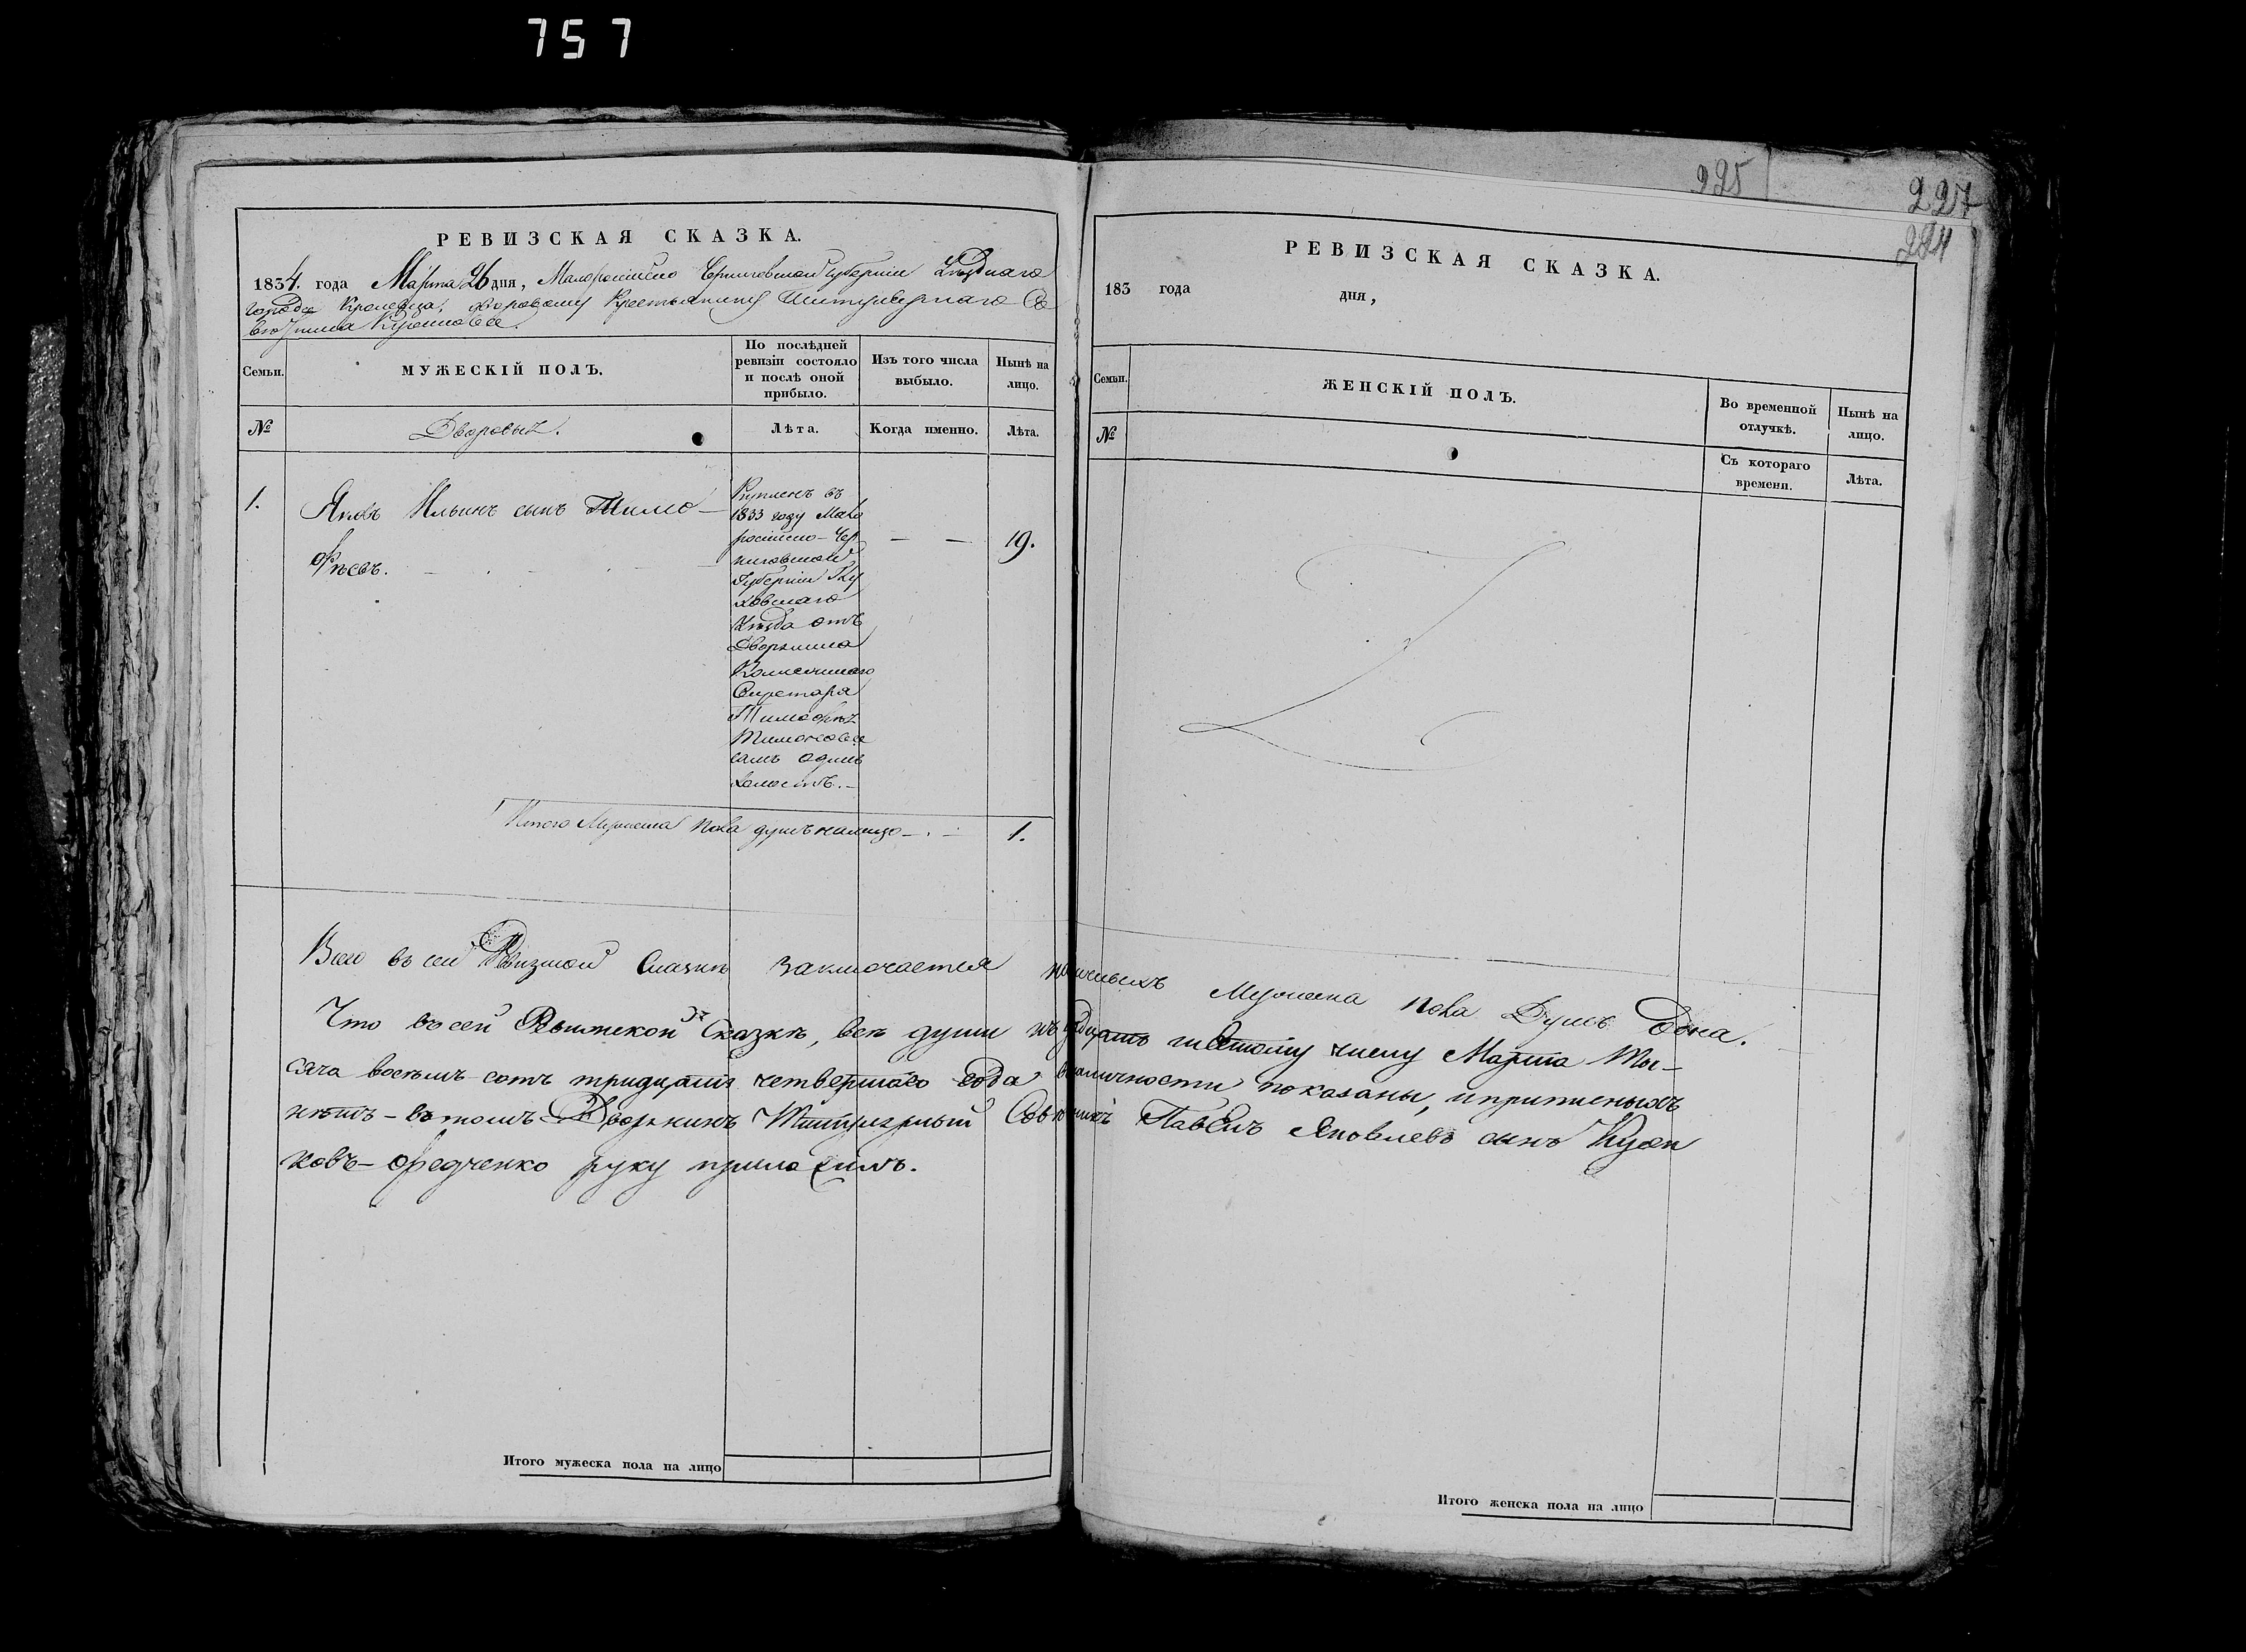 757
РЕВИЗСКАЯ СКАЗКА.
1834. года Марта 26 дня, Малоросийско Черниговской Губернии Уѣзднаго
города Кролевца, дворовому Крестьянину Титулярнаго Со
вѣтника
Семьи.
МУЖЕСКІЙ ПОЛЪ.
По послѣдней
ревизіи состояло
и послѣ оной
прибыло.
Изъ того числа
выбыло.
Нынѣ на
лицо.
№
Дворовыхъ.
Лѣта.
Когда именно.
Лѣта.
1.
Яковъ Ильинъ сынъ Тимо-
фѣевъ.
Купленъ въ
1833 году Мало
російско-Чер
ниговской
Губерніи Глу
ховскаго
Уѣзда отъ
Дворянина
Колежскаго
Секретаря
Тимофѣя
самъ одинъ
холостъ.-
19.
Итого Мужеска пола душъ налицо -.-
1.
Всего въ сей Ревизской Сказкѣ заключается наличныхъ Мужеска пола Душъ Одна.
Что въ сей Ревижской Сказкѣ, всѣ души къ двадцать шестому числу Марта Ты-
сяча восемь сотъ тридцать четвертаго года въналичности показаны, ипрописныхъ
нѣтъ - въ томъ Дворянинъ Титулярный Совѣтникъ Павелъ Яковлевъ сынъ
ковъ-Федченко руку приложилъ.
Итого мужеска пола на лицо
225
227
224
РЕВИЗСКАЯ СКАЗКА.
183 года дня,
Семьи.
ЖЕНСКІЙ ПОЛЪ.
Во временной
отлучкѣ.
Нынѣ на
лицо.
№
Съ котораго
времени.
Лѣта.
Итого женска пола на лицо